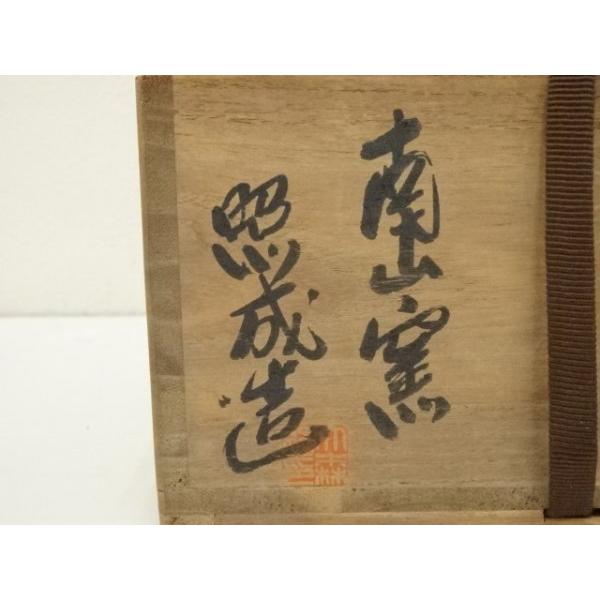 南山窯
照成造